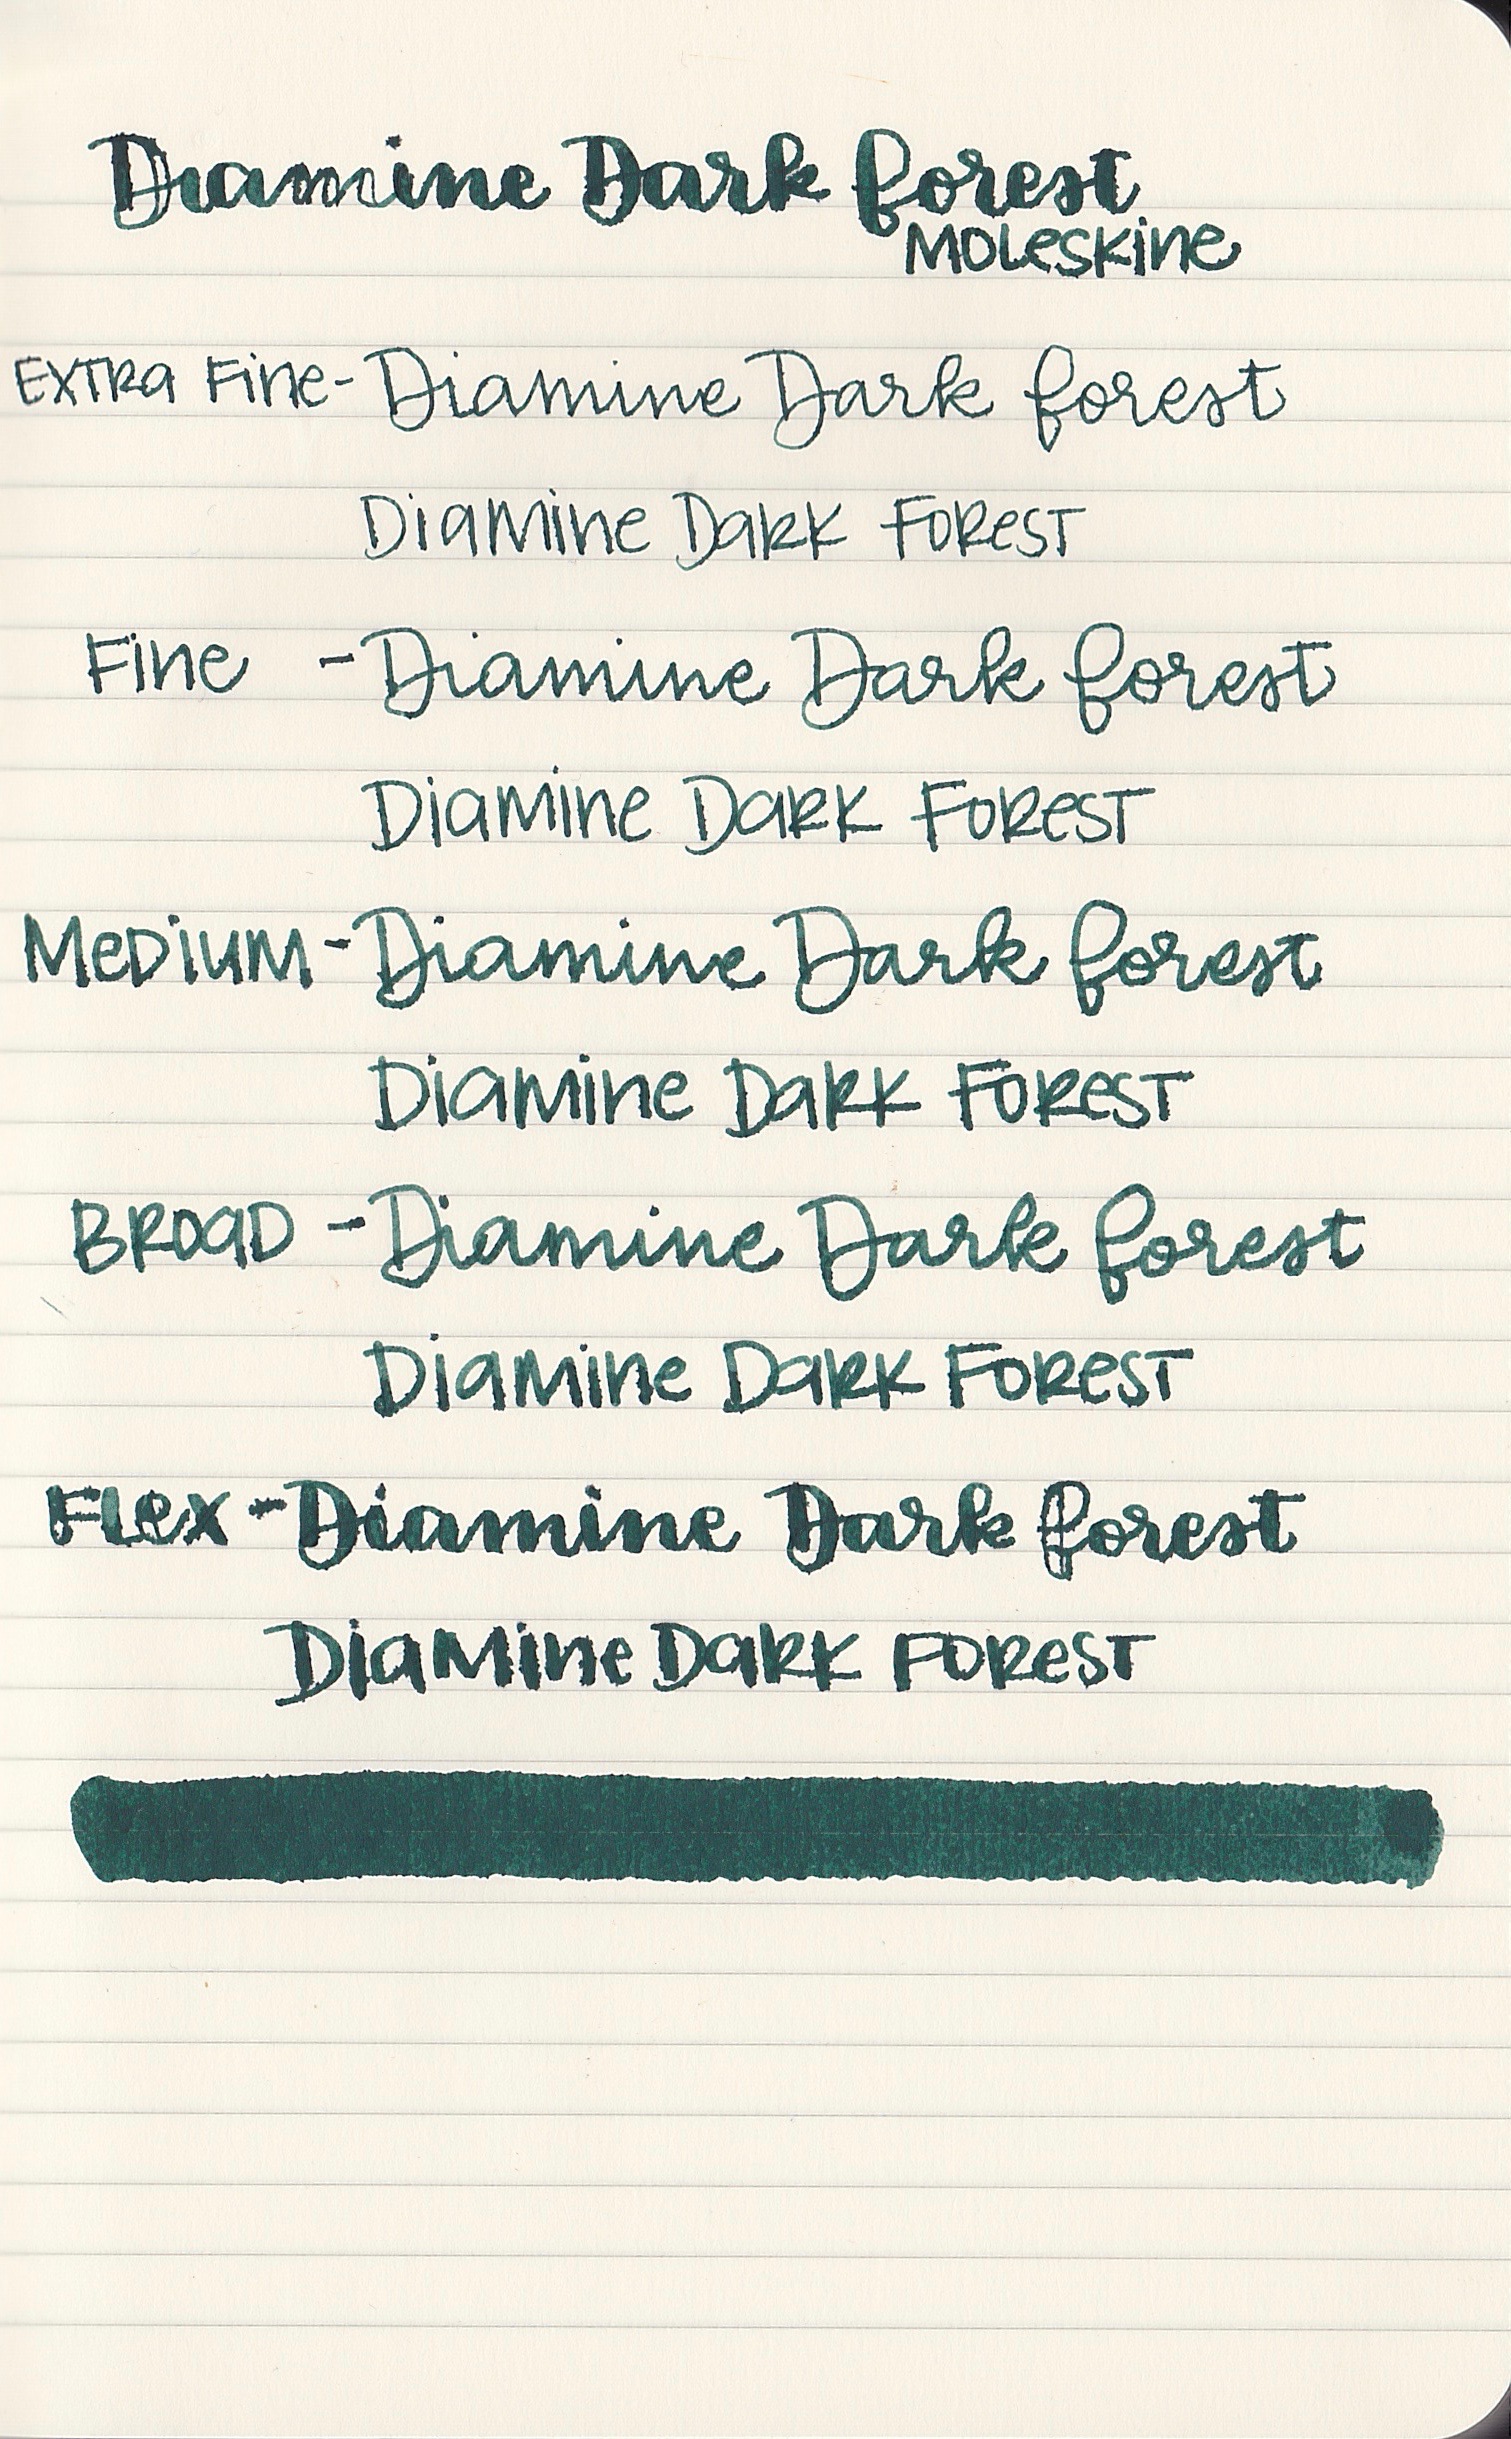 Diamine Dark forest
Moleskine
Extra Fine - Diamine Dark forest
Diamine Dark Forest
Fine - Diamine Dark forest
Diamine Dark Forest
Medium - Diamine Dark forest
Diamine Dark Forest
Broad - Diamine Dark forest
Diamine Dark Forest
Flex - Diamine Dark forest
Diamine Dark Forest